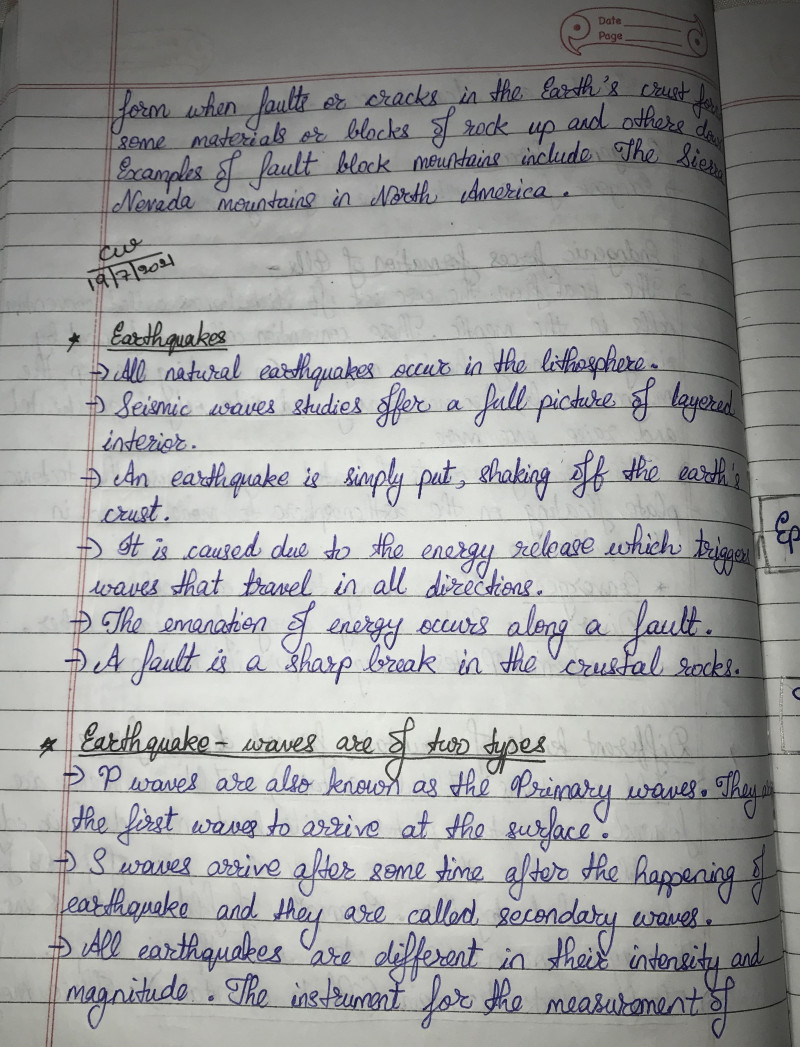 Date
Page
form when faults or cracks in the Earth's crust
some materials or blocks of rock up and others
Examples of fault block mountains include The Sierra
Nevada mountains in North America.
CW
19/7/2021
* Earthquakes
→ All natural earthquakes occur in the lithosphere.
→ Seismic waves studies offer a full picture of layered
interior.
→ An earthquake is simply put, shaking off the earth's
crust.
→ It is caused due to the energy release which triggers
waves that travel in all directions.
→ The emanation of energy occurs along a fault.
→ A fault is a sharp break in the crustal rocks.
* Earthquake - waves are of two types
→ P waves are also known as the Primary waves. They
the first waves to arrive at the surface.
→ S waves arrive after some time after the happening of
earthquake and they are called secondary waves.
→ All earthquakes are different in their intensity and
magnitude. The instrument for the measurement of
Ep